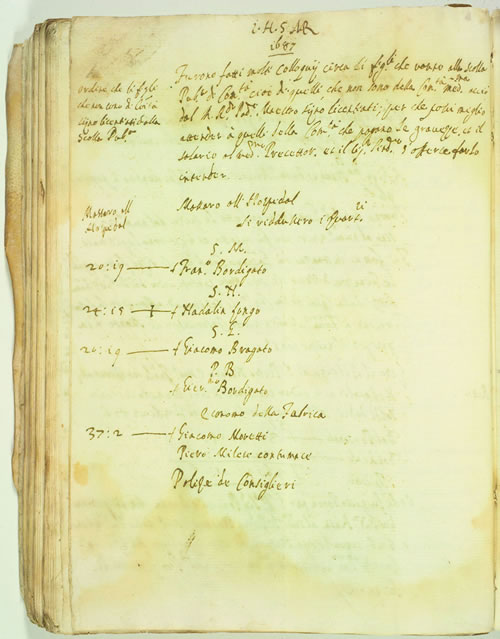 i. H. S. M.
1687
ordine che li figli
che non sono di Com.tà
siano licentiati dalla
Scolla Pub.ca
Furono fatti molti Colloquij circa li figli che vanno alla Scolla
Pub.ca di Com.tà cioè di quelli che non sono della Com.tà med.ma acciò
dal R.R. Pad. Maestro siano licentiati, per che possi meglio
attender à quelli della Com.tà che pagano le gravezze, et il
salario al med.mo Precettor, et il
intender.
Massaro all
Hospedal
Massaro all Hospedal
Si reddussero i Quart.ri
S. M.
20:19 Fran.co Bordignato
S. H.
24:15 Nadalin fongo
S. L.
20:19 Giacomo Bragato
P. B.
Gier.mo Bordignato
Economo della Fabrica
37:2 Giacomo Moretti
Piero Milese contumace
Polize de Consiglieri